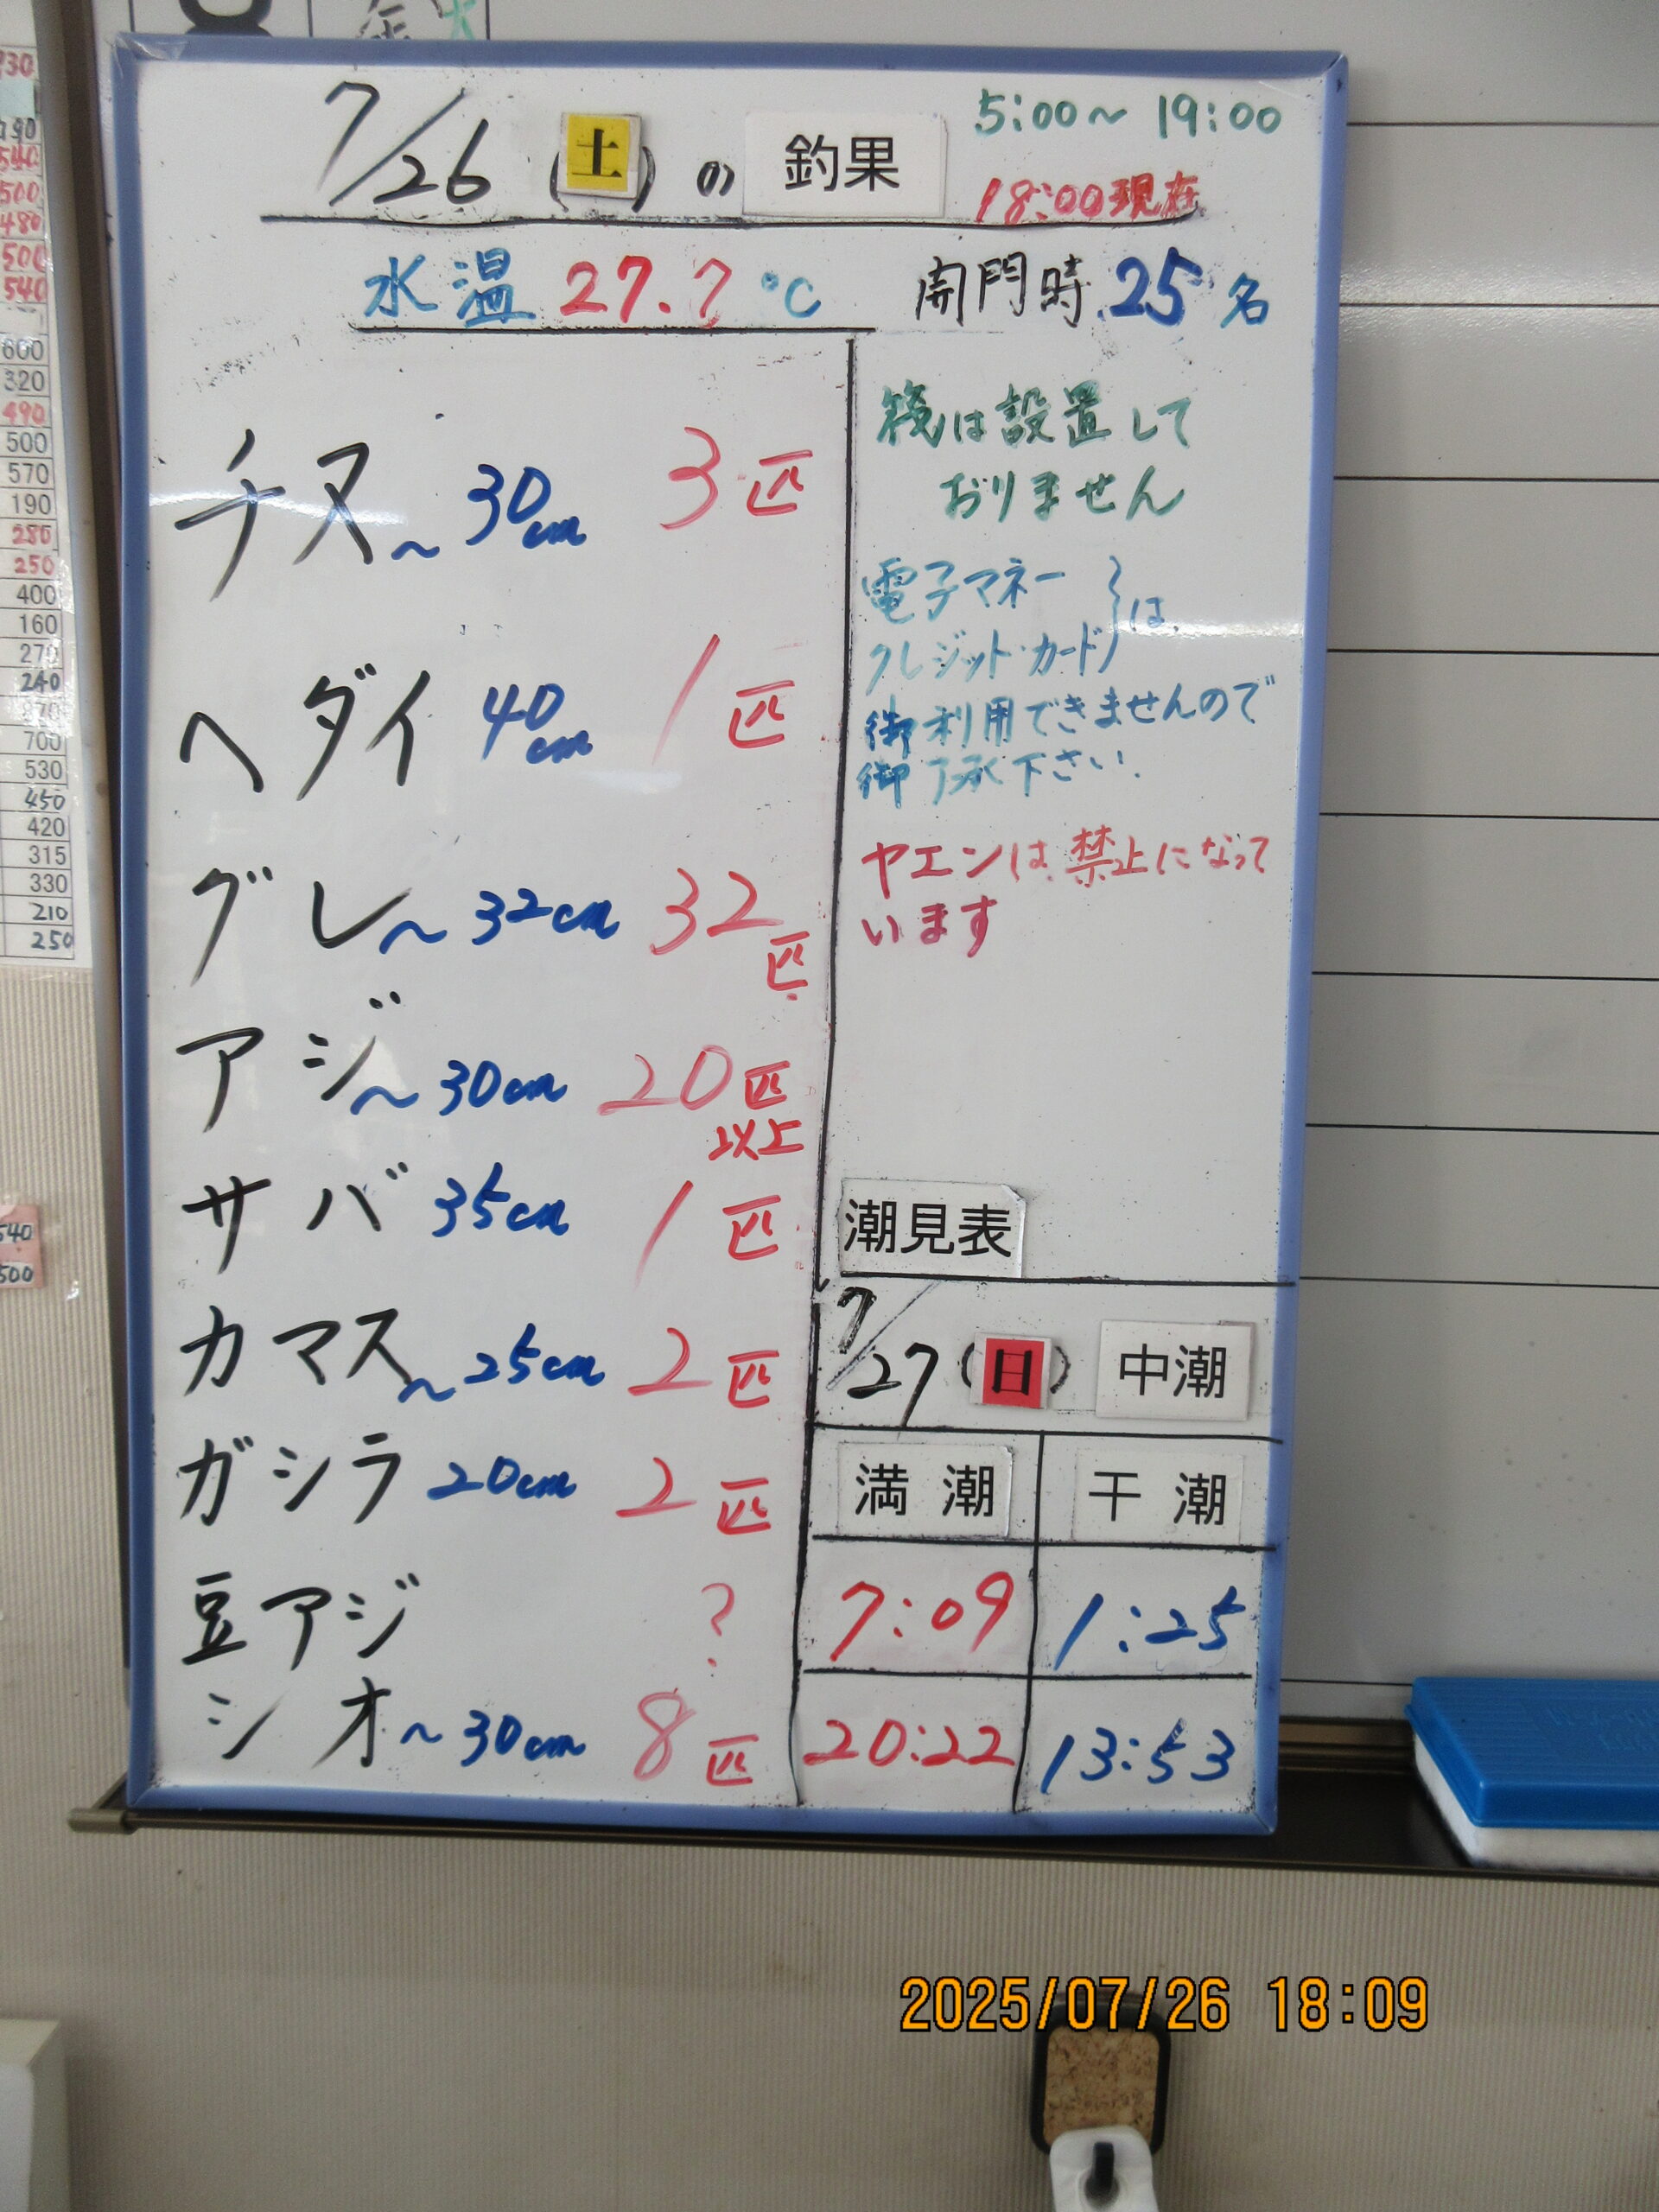 7/26 (土) の 釣果
5:00～19:00
18:00現在
水温 27.7 ℃
開門時 25名
チヌ ～30cm 3匹
ヘダイ 40cm 1匹
グレ ～32cm 32匹
アジ ～30cm 20匹以上
サバ 35cm 1匹
カマス ～25cm 2匹
ガシラ 20cm 2匹
豆アジ ?
シオ ～30cm 8匹
筏は設置して
おりません
電子マネー
クレジット・カード} は
御利用できませんので
御了承下さい.
ヤエンは禁止になって
います
潮見表
7/27 (日) 中潮
満潮 干潮
7:09 1:25
20:22 13:53
2025/07/26 18:09
600
320
490
500
570
190
280
250
400
160
270
240
870
700
530
450
420
315
330
210
250
540
500